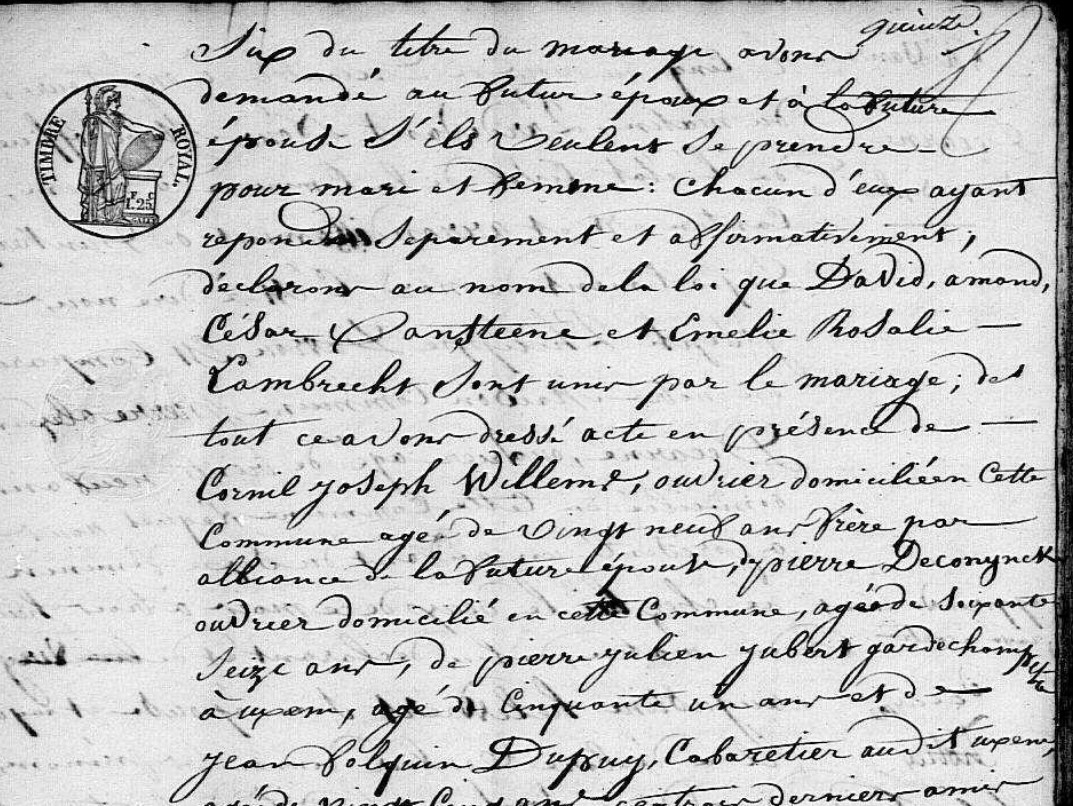 quinze
Six du titre du mariage avons
demandé au futur époux et à la future
épouse s'ils veulent se prendre
pour mari et femme : chacun d'eux ayant
repondu separement et affirmativement ;
déclarons au nom de la loi que David, amand,
César Vansteene et Emelie Rosalie —
Lambrecht sont unis par le mariage ; de
tout ce avons dressé acte en présence de —
Cornil Joseph Willems, ouvrier domicilié en cette
commune agé de vingt neuf ans frère par
alliance de la future épouse, de pierre Deconynck
ouvrier domicilié en cette Commune, agé de soixante
seize ans, de pierre julien jubert garde champetre
à uxem, agé de Cinquante un ans et de
jean folquin Dupuy, Cabaretier audit uxem,
agé de vingt ans, ces trois derniers amis
TIMBRE ROYAL.
F. C.
1. 25